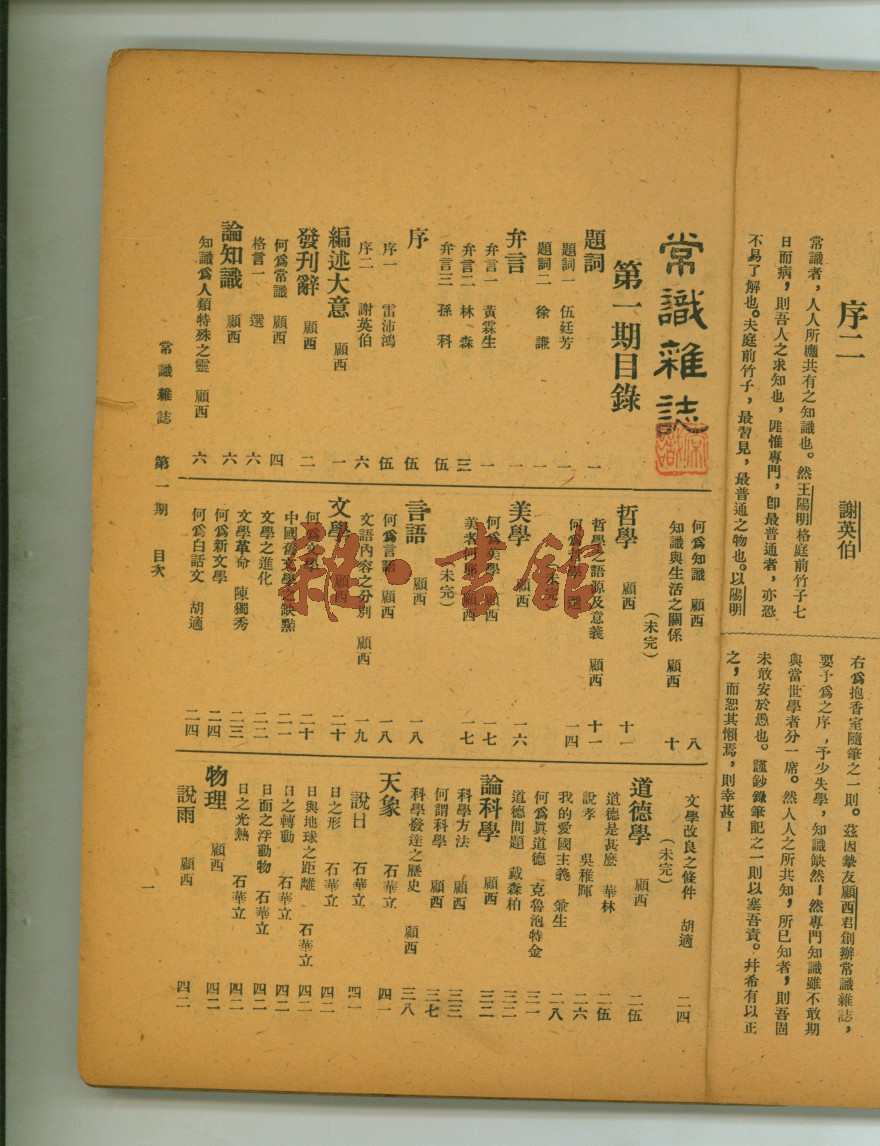 序二
謝英伯
常識者，人人所應共有之知識也。然王陽明格庭前竹子七
日而病，則吾人之求知也，匪惟專門，卽最普通者，亦恐
不易了解也。夫庭前竹子，最習見，最普通之物也。以陽明
右爲抱香室隨筆之一則。茲因摯友顧西君創辦常識雜誌，
要予爲之序，予少失學，知識缺然！然專門知識雖不敢期
與當世學者分一席。然人人之所共知，所已知者，則吾固
未敢安於愚也。謹鈔錄筆記之一則以塞吾責。幷希有以正
之，而恕其懶焉，則幸甚！
常識雜誌
第一期目錄
題詞 一
題詞一 伍廷芳 一
題詞二 徐謙 一
弁言 一
弁言一 黃霖生 一
弁言二 林森 三
弁言三 孫科 伍
序 伍
序一 雷沛鴻 伍
序二 謝英伯 六
編述大意 顧西 一
發刊辭 顧西 二
何爲常識 顧西 四
格言一 選 六
論知識 顧西 六
知識爲人類特殊之靈 顧西 六
何爲知識 顧西 八
知識與生活之關係 顧西 十
（未完）
哲學 顧西 十一
哲學之語源及意義 顧西 十一
何爲哲學 選 一四
（未完）
美學 顧西 一六
何爲美學 顧西 一七
美者何則 顧西 一七
（未完）
言語 顧西 一八
何爲言語 顧西 一八
文語內容之分別 顧西 一九
文學 顧西 二十
何爲文學 二十
中國舊文學之缺點 二一
文學之進化 二二
文學革命 陳獨秀 二三
何爲新文學 二四
何爲白話文 胡適 二四
文學改良之條件 胡適 二四
（未完）
道德學 顧西 二伍
道德是甚麽 華林 二伍
說孝 吳稚暉 二六
我的愛國主義 兼生 二八
何爲眞道德 克魯泡特金 三一
道德問題 戴森柏 三二
論科學 顧西 三二
科學方法 顧西 三三
何謂科學 顧西 三七
科學發達之歷史 顧西 三八
天象 石華立 四一
說日 石華立 四一
日之形 石華立 四二
日與地球之距離 石華立 四二
日之轉動 石華立 四二
日面之浮動物 石華立 四二
日之光熱 石華立 四二
物理 顧西 四二
說雨 顧西 四二
常識雜誌 第一期 目次 一